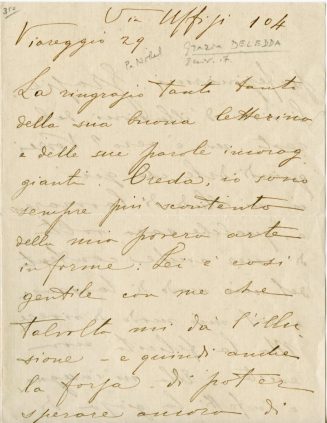 310
Via Uffizi 104
Viareggio 29
P. Nobel
Grazia DELEDDA
La ringrazio tanto tanto
della sua buona letterina
e delle sue parole incorag
gianti. Creda, io sono
sempre più scontenta
della mia povera arte
informe. Lei è così
gentile con me che
talvolta mi dà l'illu
sione - e quindi anche
la forza - di poter
sperare ancora di